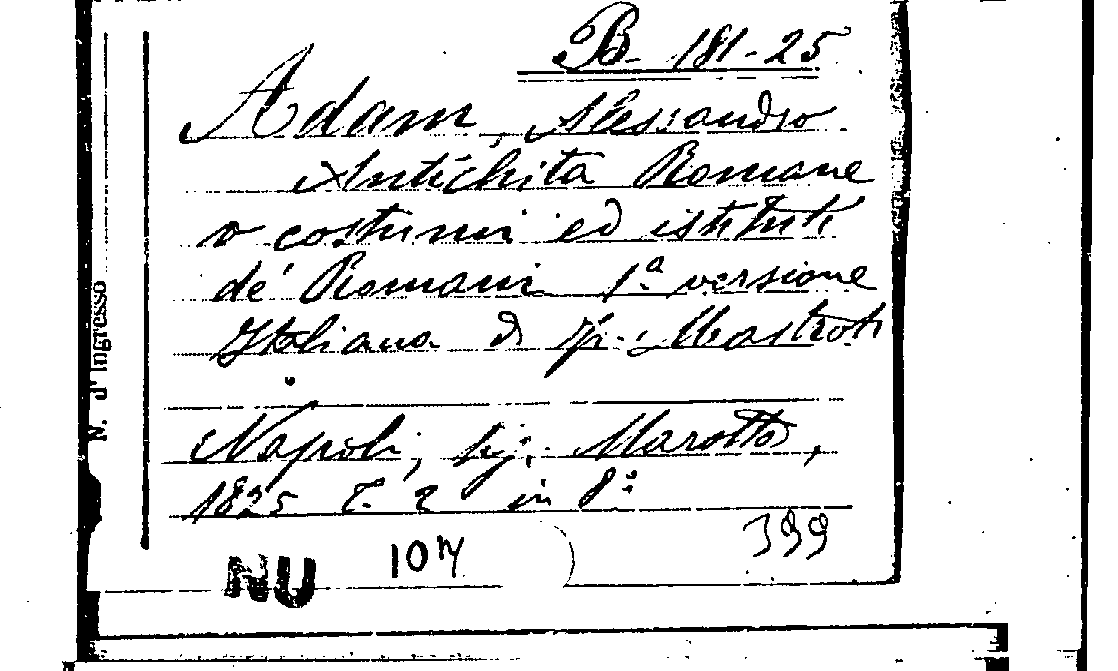 B- 181-25
Adam, Alessandro
Antichita Romane
o costumi ed istituti
de' Romani 1ª versione
Italiana di Mastroti
Napoli, tip. Marotta,
1825 T. 2 in 8º
NU 107 399
N. d'Ingresso